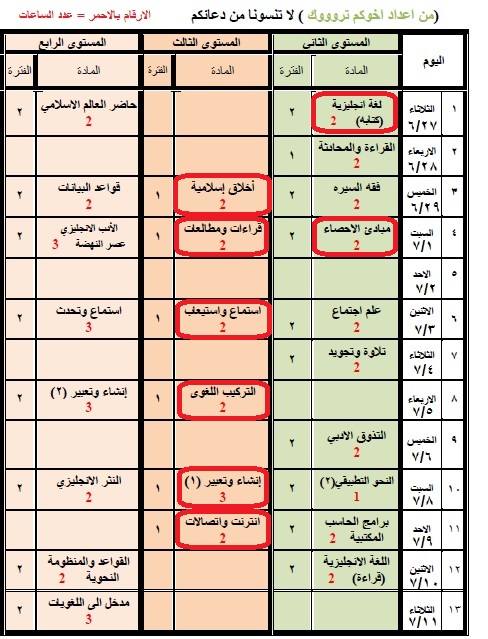 (من اعداد اخوكم ترووووك ) لا تنسونا من دعائكم الارقام بالاحمر = عدد الساعات
اليوم المستوى الثاني المستوى الثالث المستوى الرابع
المادة الفترة المادة الفترة المادة الفترة
١ الثلاثاء ٦/٢٧ لغة انجليزية (كتابه) 2 ٢ حاضر العالم الاسلامي 2 ٢
٢ الاربعاء ٦/٢٨ القراءة والمحادثة 2 ١
٣ الخميس ٦/٢٩ فقه السيره 2 ٢ أخلاق إسلامية 2 ١ قواعد البيانات 2 ٢
٤ السبت ٧/١ مبادئ الاحصاء 2 ٢ قراءات ومطالعات 2 ١ الأدب الانجليزي عصر النهضة 3 ٢
٥ الاحد ٧/٢
٦ الاثنين ٧/٣ علم اجتماع 2 ٢ استماع واستيعاب 2 ١ استماع وتحدث 3 ٢
٧ الثلاثاء ٧/٤ تلاوة وتجويد 2 ٢
٨ الاربعاء ٧/٥ التركيب اللغوى 2 ١ إنشاء وتعبير (٢) 3 ٢
٩ الخميس ٧/٦ التذوق الادبي 2 ٢
١٠ السبت ٧/٨ النحو التطبيقي(٢) 1 ٢ إنشاء وتعبير (١) 3 ١ النثر الانجليزي 2 ٢
١١ الاحد ٧/٩ برامج الحاسب المكتبية 2 ٢ انترنت واتصالات 2 ١
١٢ الاثنين ٧/١٠ اللغة الانجليزية (قراءة) 2 ٢ القواعد والمنظومة النحوية 2 ٢
١٣ الثلاثاء ٧/١١ مدخل الى اللغويات 3 ٢